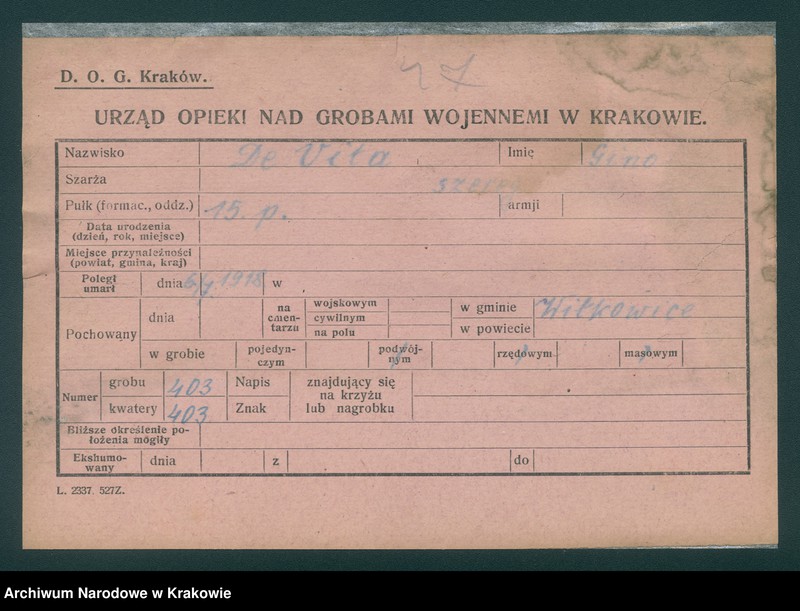 47
D. O. G. Kraków.
URZĄD OPIEKI NAD GROBAMI WOJENNEMI W KRAKOWIE.
Nazwisko De Vita Imię Gino
Szarża szereg
Pułk (formac., oddz.) 15. p. armji
Data urodzenia
(dzień, rok, miejsce)
Miejsce przynależności
(powiat, gmina, kraj)
Poległ
umarł dnia 1918 w
Pochowany dnia na cmen-tarzu wojskowym
cywilnym
na polu
w gminie Witkowice
w powiecie
w grobie pojedyn-czym podwój-nym rzędowym masowym
Numer grobu 403 Napis znajdujący się
kwatery 403 Znak na krzyżu
lub nagrobku
Bliższe określenie po-
łożenia mogiły
Ekshumo-
wany dnia z do
L. 2337 527Z.
Archiwum Narodowe w Krakowie